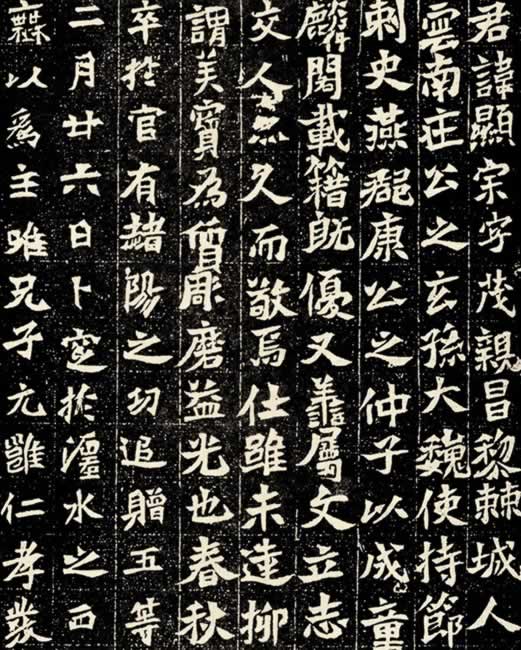 君諱顯宗字茂親昌黎棘城人
雲南莊公之玄孫大魏使持節
刺史燕郡康公之仲子以成童
麟閣載籍既優又善屬文立志
交人亦久而敬焉仕雖未達抑
謂美寶為質彫磨益光也春秋
卒於官有赭陽之功追贈五等
二月廿六日卜窆於瀍水之西
以爲主唯兄子元雍仁孝發